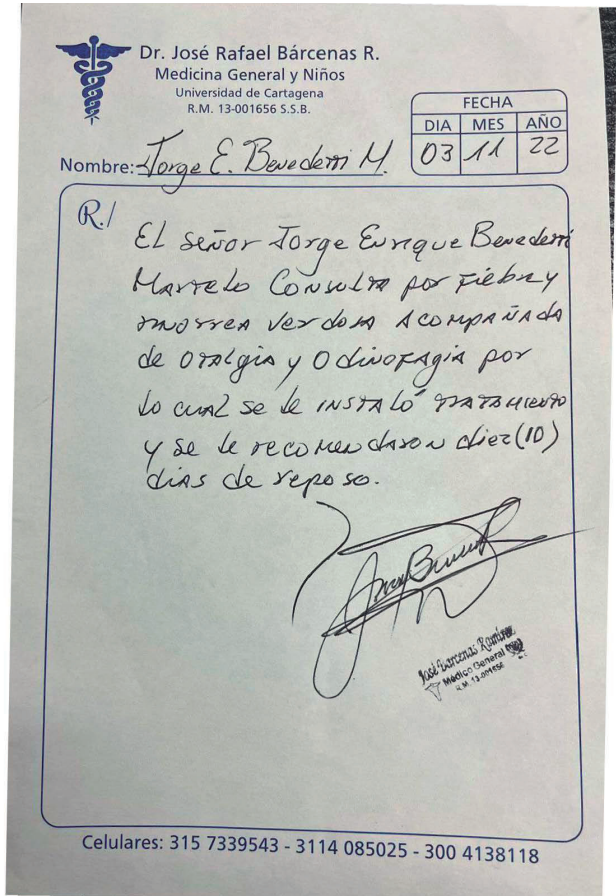 Dr. José Rafael Bárcenas R.
Medicina General y Niños
Universidad de Cartagena
R.M. 13-001656 S.S.B.
FECHA
DIA MES AÑO
03 11 22
Nombre: Jorge E. Benedetti M.
R./
El señor Jorge Enrique Benedetti
Martelo Consulta por fiebre y
rinorrea verdosa acompañada
de otalgia y Odinofagia por
lo cual se le instaló tratamiento
y se le recomendaron diez (10)
dias de reposo.
José Bárcenas Ramírez
Médico General
R.M. 13-001656
Celulares: 315 7339543 - 3114 085025 - 300 4138118